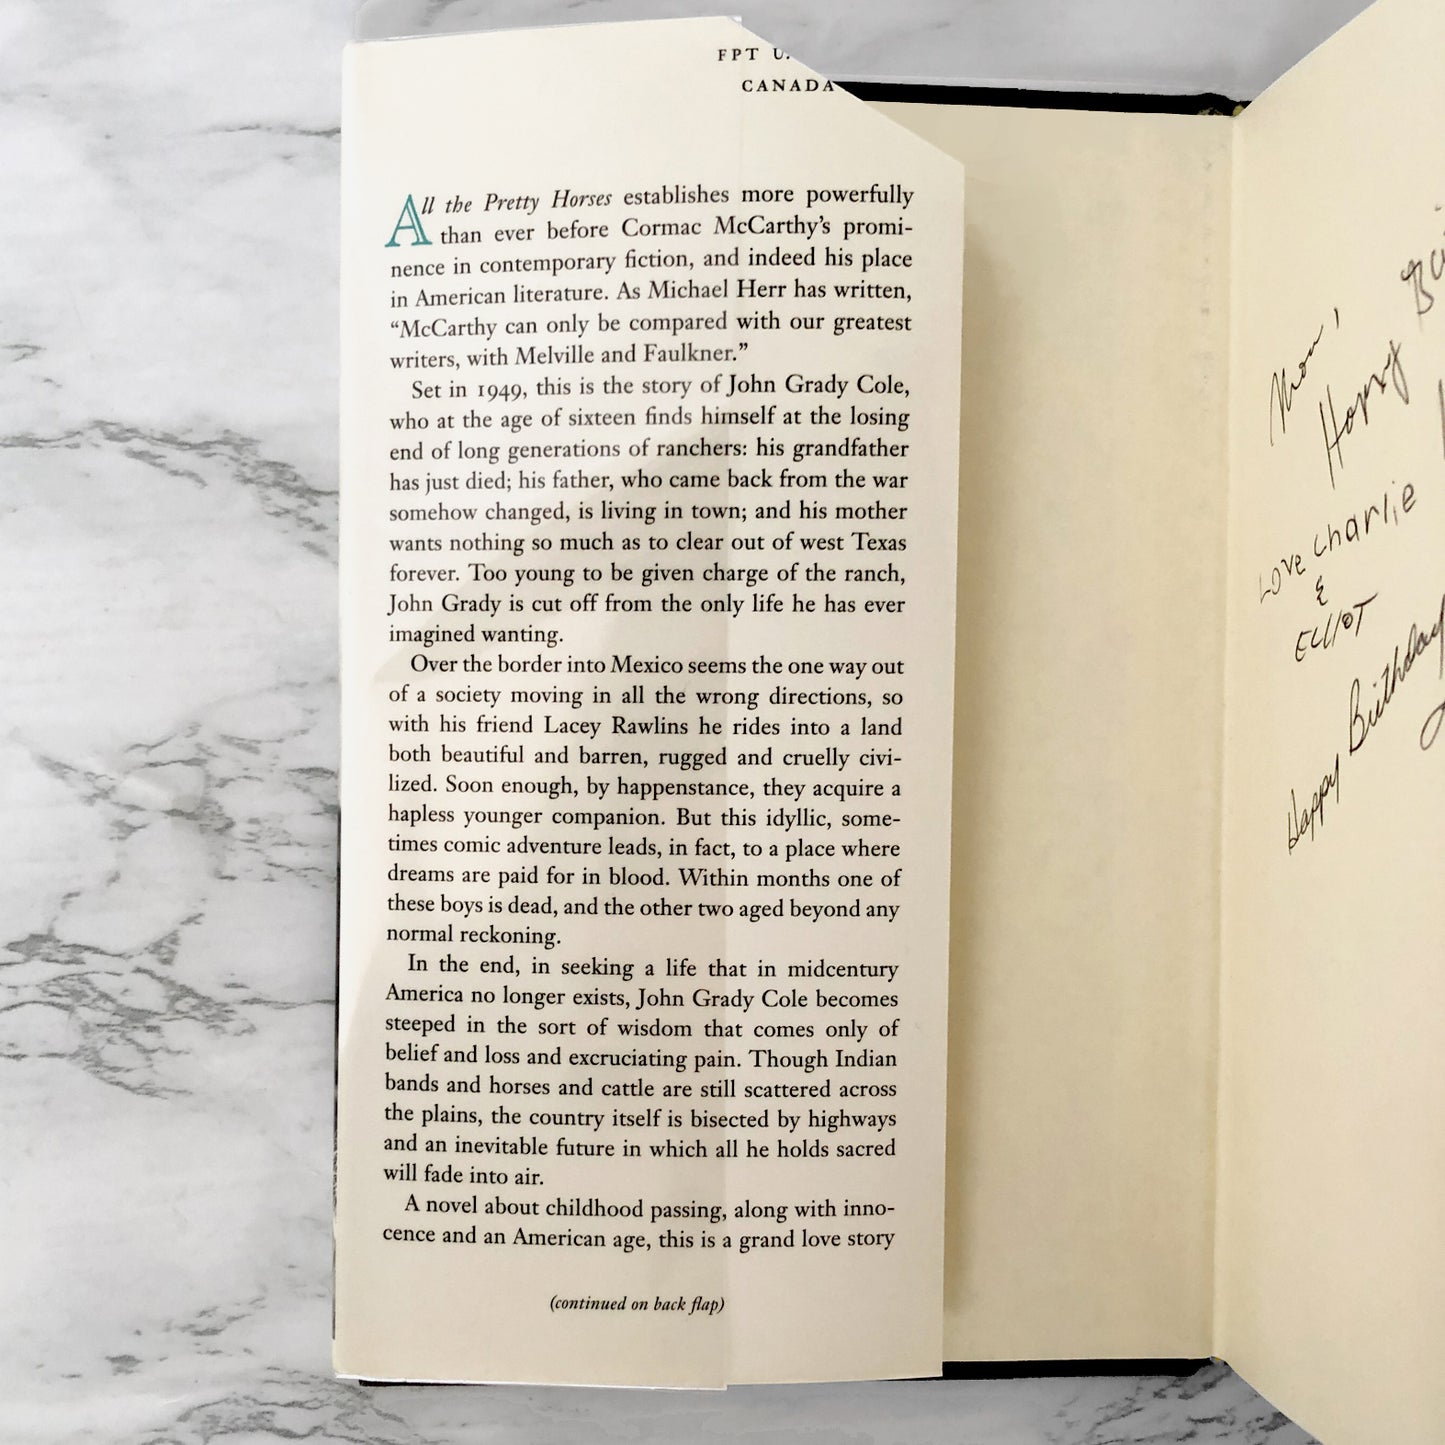 FPT U.
CANADA
All the Pretty Horses establishes more powerfully
than ever before Cormac McCarthy's promi-
nence in contemporary fiction, and indeed his place
in American literature. As Michael Herr has written,
“McCarthy can only be compared with our greatest
writers, with Melville and Faulkner.”
Set in 1949, this is the story of John Grady Cole,
who at the age of sixteen finds himself at the losing
end of long generations of ranchers: his grandfather
has just died; his father, who came back from the war
somehow changed, is living in town; and his mother
wants nothing so much as to clear out of west Texas
forever. Too young to be given charge of the ranch,
John Grady is cut off from the only life he has ever
imagined wanting.
Over the border into Mexico seems the one way out
of a society moving in all the wrong directions, so
with his friend Lacey Rawlins he rides into a land
both beautiful and barren, rugged and cruelly civi-
lized. Soon enough, by happenstance, they acquire a
hapless younger companion. But this idyllic, some-
times comic adventure leads, in fact, to a place where
dreams are paid for in blood. Within months one of
these boys is dead, and the other two aged beyond any
normal reckoning.
In the end, in seeking a life that in midcentury
America no longer exists, John Grady Cole becomes
steeped in the sort of wisdom that comes only of
belief and loss and excruciating pain. Though Indian
bands and horses and cattle are still scattered across
the plains, the country itself is bisected by highways
and an inevitable future in which all he holds sacred
will fade into air.
A novel about childhood passing, along with inno-
cence and an American age, this is a grand love story
(continued on back flap)
Mom,
Happy
Love Charlie
&
ELLIOT
Happy Birthday